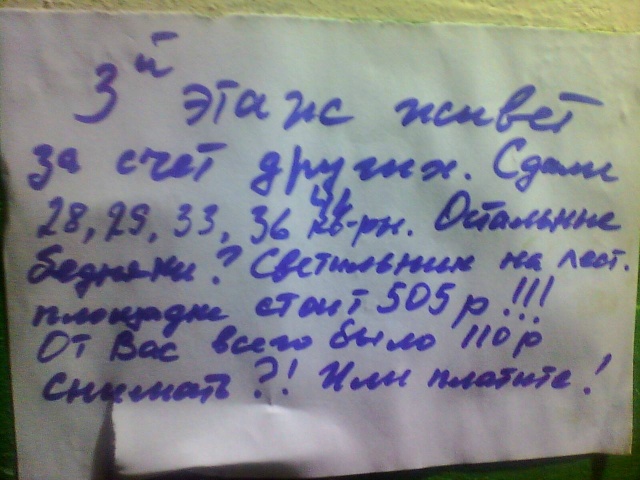 3й этаж живет
за счет других. Сдали
28, 29, 33, 36 кв-ры. Остальные
бедняки? Светильник на лест.
площадке стоит 505 р!!!
От Вас всего было 110 р
Снимать?! Или платите!